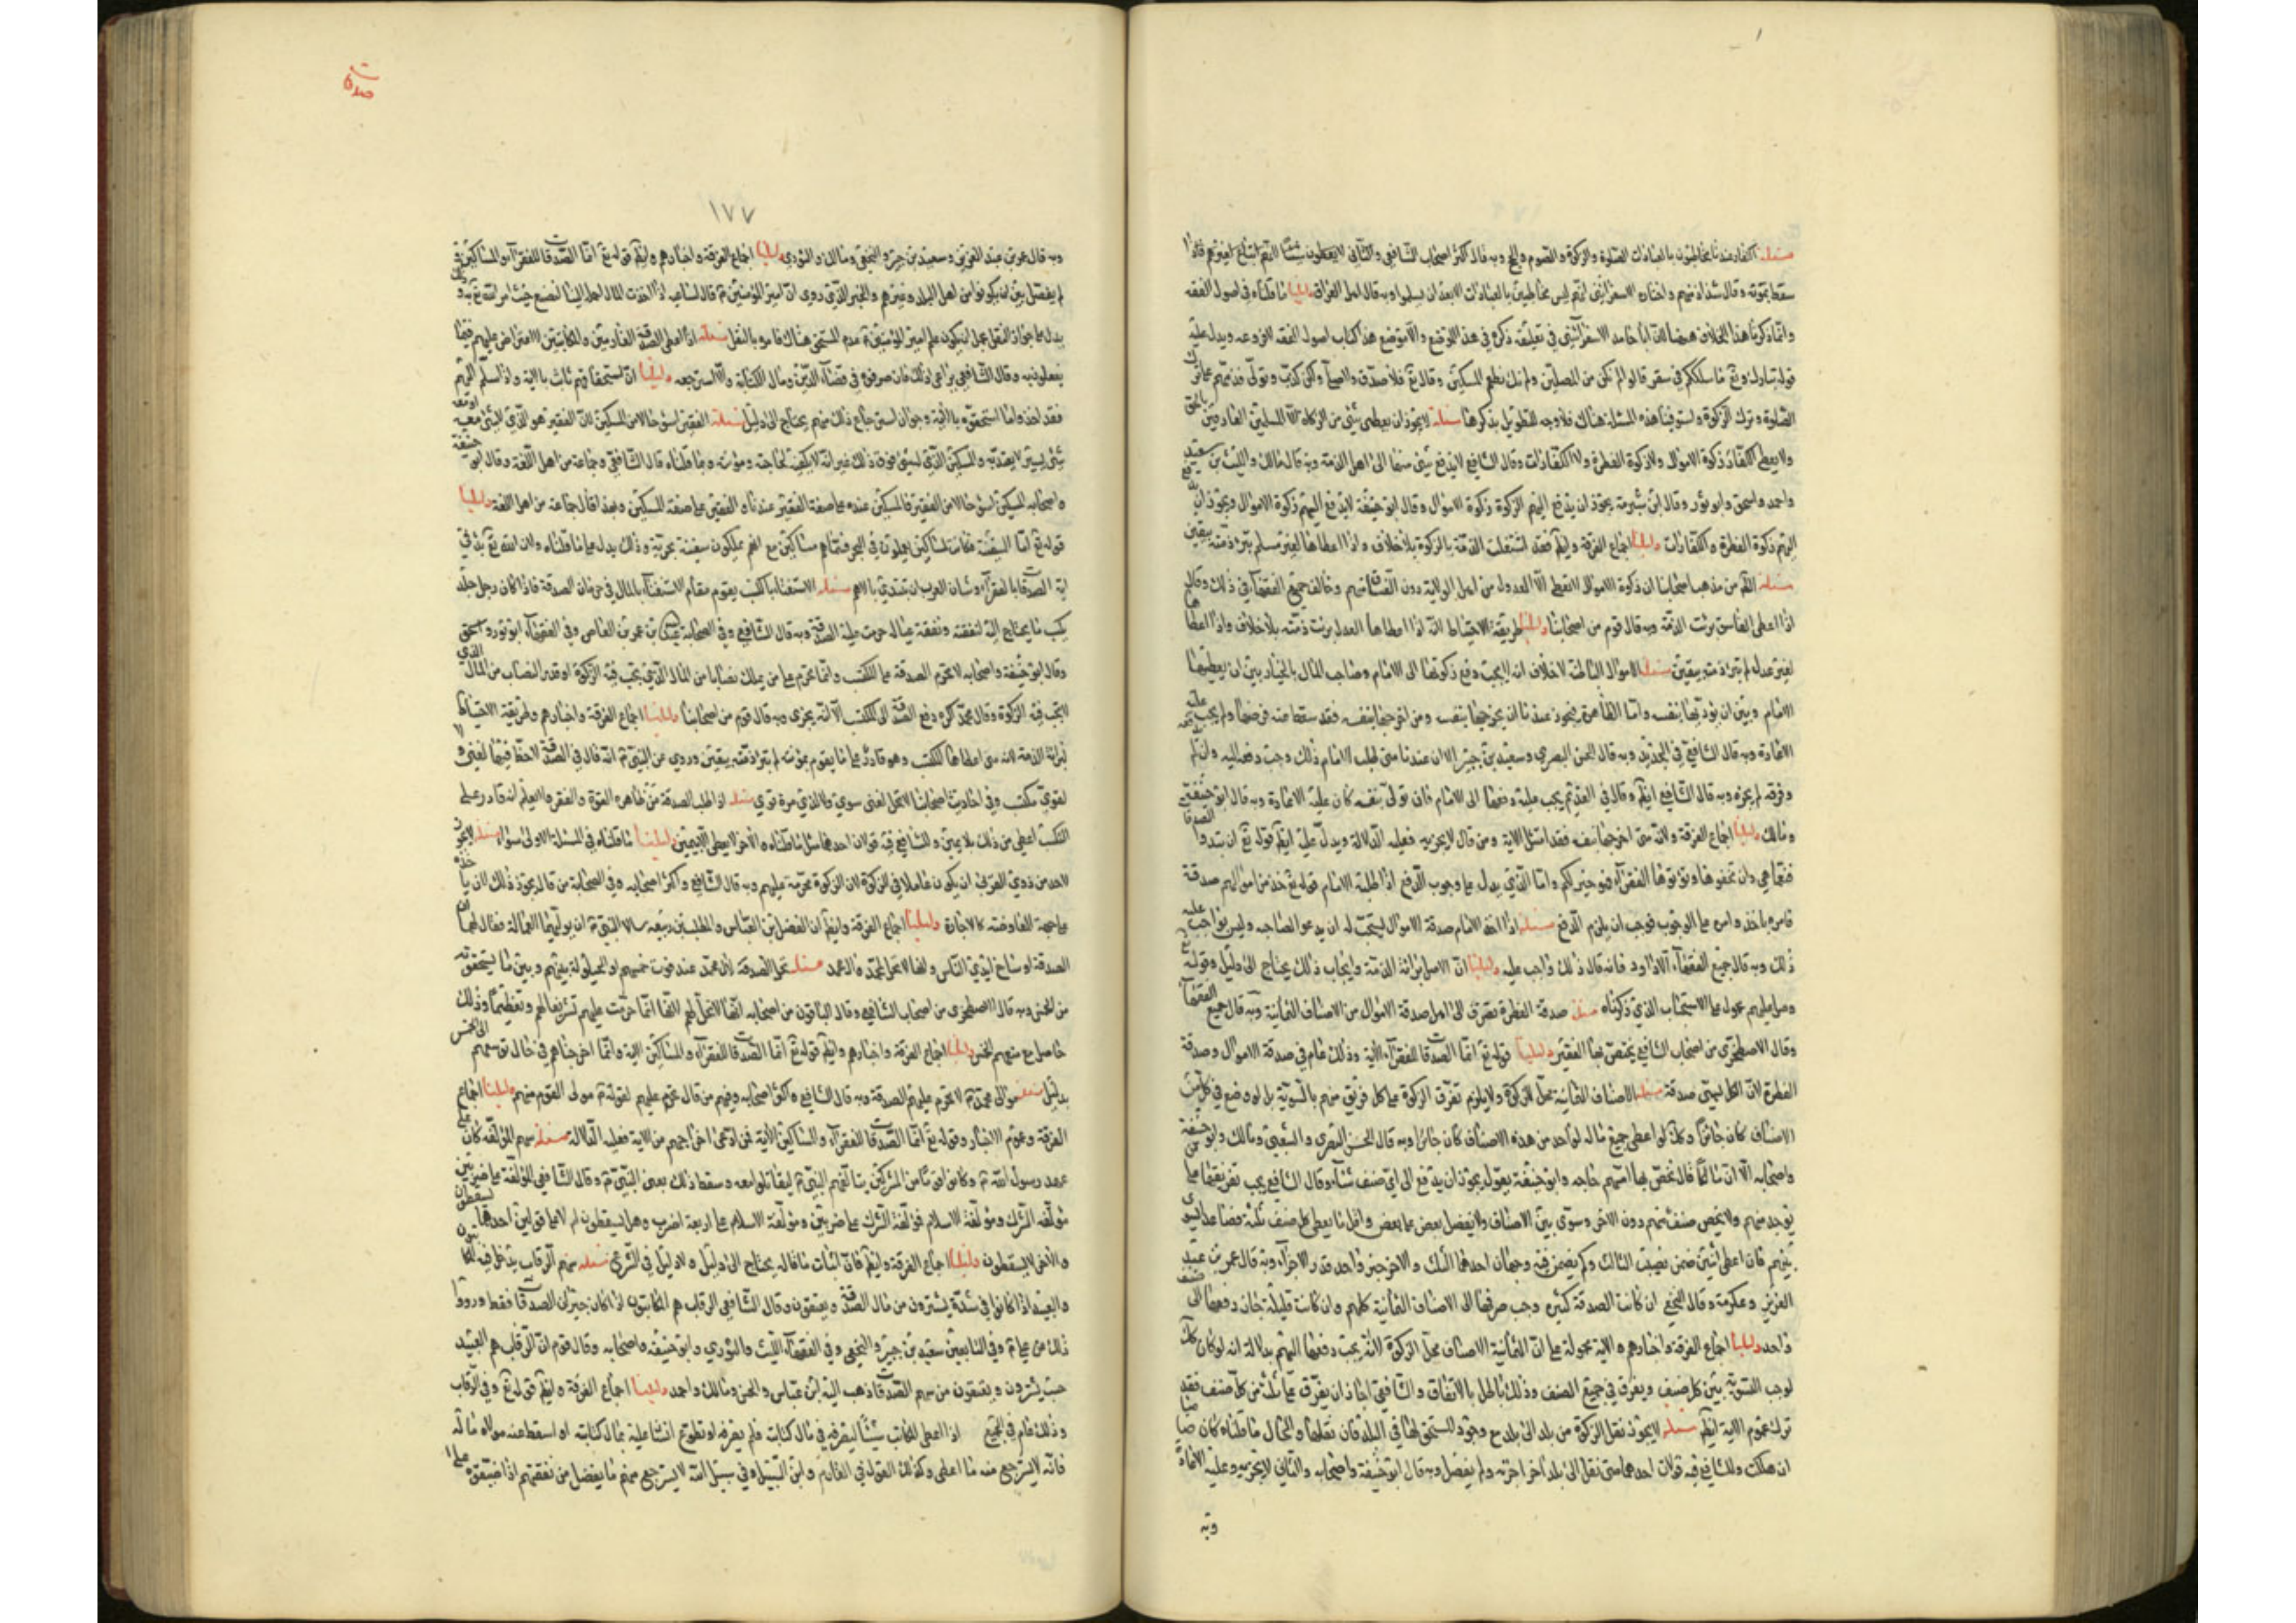 مسئله الكفار عندنا مخاطبون بالعبادات الصلوة والزكوة والصوم والحج وبه قال اكثر اصحاب الشافعي
سقط بموته وقال شذاذ منهم واختاره الاسفرايني انهم ليس مخاطبين بالعبادات الا بعد ان يسلموا وبه قال اهل العراق دليلنا ما قلناه في اصول الفقه
وانما ذكرنا هذا الخلاف ههنا لان ابا حامد الاسفرائيني في تعليقه ذكره في هذا الموضع والا موضع هذا كتاب اصول الفقه ويدل عليه
قوله تبارك وتع ما سلككم في سقر قالوا لم نكن من المصلين ولم نك نطعم المسكين وقال تع فلا صدق ولا صلى ولكن كذب وتولى فذمهم على ترك
الصلوة وترك الزكوة واستوفينا هذه المسئلة هناك فلا وجه للتطويل بذكرها مسئله لا يجوز ان يعطى شئ من الزكاة الا المسلمين العارفين بالحق
ولا يعطى الكفار لا زكوة الاموال ولا زكوة الفطرة ولا الكفارات وقال الشافعي لا يدفع شئ منها الى اهل الذمة وبه قال مالك والليث بن سعد
واحمد واسحق وابو ثور وقال ابن شبرمة يجوز ان يدفع اليهم الزكوة زكوة الاموال وقال ابو حنيفة لا يدفع اليهم زكوة الاموال ويجوز ان يدفع
اليهم زكوة الفطرة والكفارات دليلنا اجماع الفرقة وايضا فقد اشتغلت الذمة بالزكوة بلا خلاف واذا اعطاها لغير مسلم لم تبرء ذمته بيقين
مسئله الظاهر من مذهب اصحابنا ان زكوة الاموال لا تعطى الا العدول من اهل الولاية دون الفساق منهم وخالف جميع الفقهاء في ذلك وقالوا
اذا اعطى الفاسق برئت الذمة وبه قال قوم من اصحابنا دليلنا طريقة الاحتياط لانه اذا اعطاها العدل برئت ذمته بلا خلاف واذا اعطاها
لغير عدل لم تبرء ذمته بيقين مسئله الاموال الباطنة لا خلاف انه لا يجب دفع زكوتها الى الامام وصاحب المال بالخيار بين ان يعطيها
الامام وبين ان يؤديها بنفسه واما الظاهرة فيجوز عندنا ان يخرجها بنفسه ومن اخرجها بنفسه فقد سقط عنه فرضها ولم يجب عليه
الاعادة وبه قال الشافعي في الجديد وبه قال الحسن البصري وسعيد بن جبير الا ان عندنا متى طلب الامام ذلك وجب دفعه اليه وان لم
وفرقه لم يجزه وبه قال الشافعي ايضا وقال في القديم يجب عليه دفعها الى الامام فان تولى بنفسه كان عليه الاعادة وبه قال ابو حنيفة
ومالك دليلنا اجماع الفرقة ولانه متى اخرجها بنفسه فقد امتثل الاية ومن قال لا يجزيه فعليه الدلالة ويدل عليه ايضا قوله تع ان تبدوا الصدقات
فنعما هي وان تخفوها وتؤتوها الفقراء فهو خير لكم واما الذي يدل على وجوب الدفع اذا طلبه الامام قوله تع خذ من اموالهم صدقة
فامره بالاخذ وامره على الوجوب فوجب ان يلزم الدفع مسئله اذا اخذ الامام صدقة الاموال يستحب له ان يدعو لصاحبه وليس بواجب عليه
ذلك وبه قال جميع الفقهاء الا داود فانه قال ذلك واجب عليه دليلنا ان الاصل برائة الذمة وايجاب ذلك يحتاج الى دليل وقوله تع
وصل عليهم محمول على الاستحباب الذي ذكرناه مسئله صدقة الفطرة تصرف الى اهل صدقة الاموال من الاصناف الثمانية وبه قال جميع الفقهاء
وقال الاصطخري من اصحاب الشافعي يختص بها الفقير دليلنا قوله تع انما الصدقات للفقراء الاية وذلك عام في صدقة الاموال وصدقة
الفطرة لان الكل يسمى صدقة مسئله الاصناف الثمانية محل الزكوة ولا يلزم تفرق الزكوة على كل فريق منهم بالسوية بل لو وضع في كل من
الاصناف كان جائزا وكذلك لو اعطى جميع ماله لواحد من هذه الاصناف كان جائزا وبه قال الحسن البصري والشعبي ومالك وابو حنيفة
واصحابه الا ان مالكا قال يخص بها امسهم حاجه وابو حنيفة يقول يجوز ان يدفع الى اي صنف شاء وقال الشافعي يجب تفريقها على من
يوجد منهم ولا يخص صنف منهم دون الاخر وسوى بين الاصناف ولا يفضل بعض على بعض واقل ما يعطى كل صنف ثلثة فصاعدا يسوى
بينهم فان اعطى اثنين ضمن نصيب الثالث وكم يضمن فيه وجهان احدهما الثلث والاخر جزء واحد قدر الاجزاء وبه قال عمر بن عبد
العزيز وعكرمة وقال النخعي ان كانت الصدقة كثيرة وجب صرفها الى الاصناف الثمانية كلهم وان كانت قليلة جاز دفعها الى صنف
واحد دليلنا اجماع الفرقة واخبارهم والاية محمولة على ان الثمانية الاصناف محل الزكوة لا انه يجب دفعها اليهم بدلالة انه لو كان كذلك
لوجب التسوية بين كل صنف ويفرق في جميع الصنف وذلك باطل بالاتفاق والشافعي اجاز ان يفرق على ثلثة من كل صنف فقد
ترك عموم الاية ايضا مسئله لا يجوز نقل الزكوة من بلد الى بلد مع وجود المستحق لها في البلد فان نقلها والحال ما قلناه كان ضامنا
ان هلكت وللشافعي فيه قولان احدهما متى نقل الى بلد اخر اجزته ولم يفصل وبه قال ابو حنيفة واصحابه والثاني لا يجزيه وعليه الاعادة
وبه
صدقات
١٧٧
وبه قال عمر بن عبد العزيز وسعيد بن جبير والنخعي ومالك والثوري دليلنا اجماع الفرقة واخبارهم وايضا قوله تع انما الصدقات للفقراء والمساكين
لم يفصل بين ان يكونوا من اهل البلد وغيرهم والخبر الذي روي ان امير المؤمنين قال لساعيه اذا اخذت المال احمله الينا لنضعه حيث امر الله تع به
يدل على جواز النقل مسئله اذا اعطى الصدقة الغارمين والمكاتبين لا اعتراض عليهم فيما
يفعلون به وقال الشافعي يراعى ذلك فان صرفوه في قضاء الدين ومال الكتابة والا استرجعه دليلنا ان استحقاقهم ثابت بالاية واذا سلم اليهم
فقد اخذوا ما استحقوه بالاية وجواز استرجاع ذلك منهم يحتاج الى دليل مسئله الفقير اسوء حالا من المسكين لان الفقير هو الذي لا شئ معه او معه
شئ يسير لا يعتد به والمسكين الذي له شئ فوق ذلك غير انه لا يكفيه لحاجته ومؤنته وبما قلناه قال الشافعي وجماعة من اهل اللغة وقال ابو حنيفة
واصحابه المسكين اسوء حالا من الفقير فالمسكين عنده على صفة الفقير عندنا والفقير على صفة المسكين وبهذا قال جماعة من اهل اللغة دليلنا
قوله تع اما السفينة فكانت لمساكين يعملون في البحر فسماهم مساكين مع انهم يملكون سفينة بحرية وذلك يدل على ما قلناه ولان الله تع بدء في
اية الصدقات بالفقراء وشان العرب ان تبتدئ بالاهم مسئله الاستغناء بالكسب يقوم مقام الاستغناء بالمال في حرمان الصدقة فاذا كان رجل جلد
يكسب ما يحتاج اليه لنفقته ونفقة عياله حرمت عليه الصدقة وبه قال الشافعي وفي الصحابة عبد الله بن عمرو بن العاص وفي الفقهاء ابو ثور واسحق
وقال ابو حنيفة واصحابه لا تحرم الصدقة على المكتسب وانما تحرم على من يملك نصابا من المال الذي يجب فيه الزكوة او قدر النصاب من المال الذي
لا يجب فيه الزكوة وقال محمد اكره دفع الصدقة الى المكتسب الا انه يجزى وبه قال قوم من اصحابنا دليلنا اجماع الفرقة واخبارهم وطريقة الاحتياط
لبرائة الذمة لانه متى اعطاها المكتسب وهو قادر على ما يقوم بمؤنته لم تبرء ذمته بيقين وروي عن النبي انه قال في الصدقة لا حظ فيها لغني ولا
لقوي مكتسب وفي احاديث اصحابنا لا تحل لغني سوي ولا لذي مرة قوي مسئله اذا طلب الصدقة من ظاهره القوة والفقر ولا يعلم انه قادر على
التكسب اعطي من ذلك بلا يمين وللشافعي فيه قولان احدهما مثل ما قلناه والاخر لا يعطى الا بيمين دليلنا ما قلناه في المسئلة الاولى سواء مسئله لا يجوز
لاحد من ذوي القربى ان يكون عاملا في الزكوة لان الزكوة محرمة عليهم وبه قال الشافعي واكثر اصحابه وفي اصحابه من قال يجوز ذلك لان ما ياخذه
على جهة المعاوضة كالاجارة دليلنا اجماع الفرقة وايضا ان الفضل بن العباس والمطلب بن ربيعه سالا النبي ان يوليهما العمالة فقال لهما ان
الصدقة اوساخ ايدي الناس وانها لا تحل لمحمد وال محمد مسئله تحل الصدقة لآل محمد عند فوت خمسهم او الحيلولة بينهم وبين ما يستحقونه
من الخمس وبه قال الاصطخري من اصحاب الشافعي وقال الباقون من اصحابه انها لا تحل لهم لانها انما حرمت عليهم تشريفا لهم وتعظيما وذلك
حاصل مع منعهم الخمس دليلنا اجماع الفرقة واخبارهم وايضا قوله تع انما الصدقات للفقراء والمساكين الاية وانما اخرجناهم في حال توسعهم الى الخمس
بدليل مسئله موالي محمد لا تحرم عليهم الصدقة وبه قال الشافعي واكثر اصحابه وفيهم من قال تحرم عليهم لقوله مولى القوم منهم دليلنا اجماع
الفرقة وعموم الاخبار وقوله تع انما الصدقات للفقراء والمساكين الاية فمن ادعى اخراجهم من الاية فعليه الدلالة مسئله سهم المؤلفة كان على
عهد رسول الله وكانوا قوما من المشركين يتالفهم النبي ليقاتلوا معه وسقط ذلك بعد النبي وقال الشافعي المؤلفة على ضربين
مؤلفة الشرك ومؤلفة الاسلام فمؤلفة الشرك على ضربين ومؤلفة الاسلام على اربعة اضرب وهل يسقطون ام لا على قولين احدهما يسقطون
والاخر لا يسقطون دليلنا اجماع الفرقة وايضا فان اثبات ما قاله يحتاج الى دليل ولا دليل في الشرع مسئله سهم الرقاب يدخل فيه المكاتبون
والعبيد اذا كانوا في شدة يشترون من مال الصدقة ويعتقون وقال الشافعي الرقاب هم المكاتبون اذا كان جيزان الصدقات فقط ورووا
ذلك عن علي وفي التابعين سعيد بن جبير والنخعي وفي الفقهاء الليث والثوري وابو حنيفة واصحابه وقال قوم ان الرقاب هم العبيد
حسب يشترون ويعتقون من سهم الصدقات ذهب اليه ابن عباس والحسن ومالك واحمد دليلنا اجماع الفرقة وايضا قوله تع وفي الرقاب
وذلك عام في الجميع اذا اعطى المكاتب شيئا ليصرفه في مال كتابته فلم يصرفه او تطوع انسان عليه بمال كتابته او اسقط عنه مولاه ماله
فانه لا يسترجع منه ما اعطي وكذلك القول في الغارم وابن السبيل وفي سبيل الله لا يسترجع منهم ما يفضل من نفقتهم اذا ضيقوه على